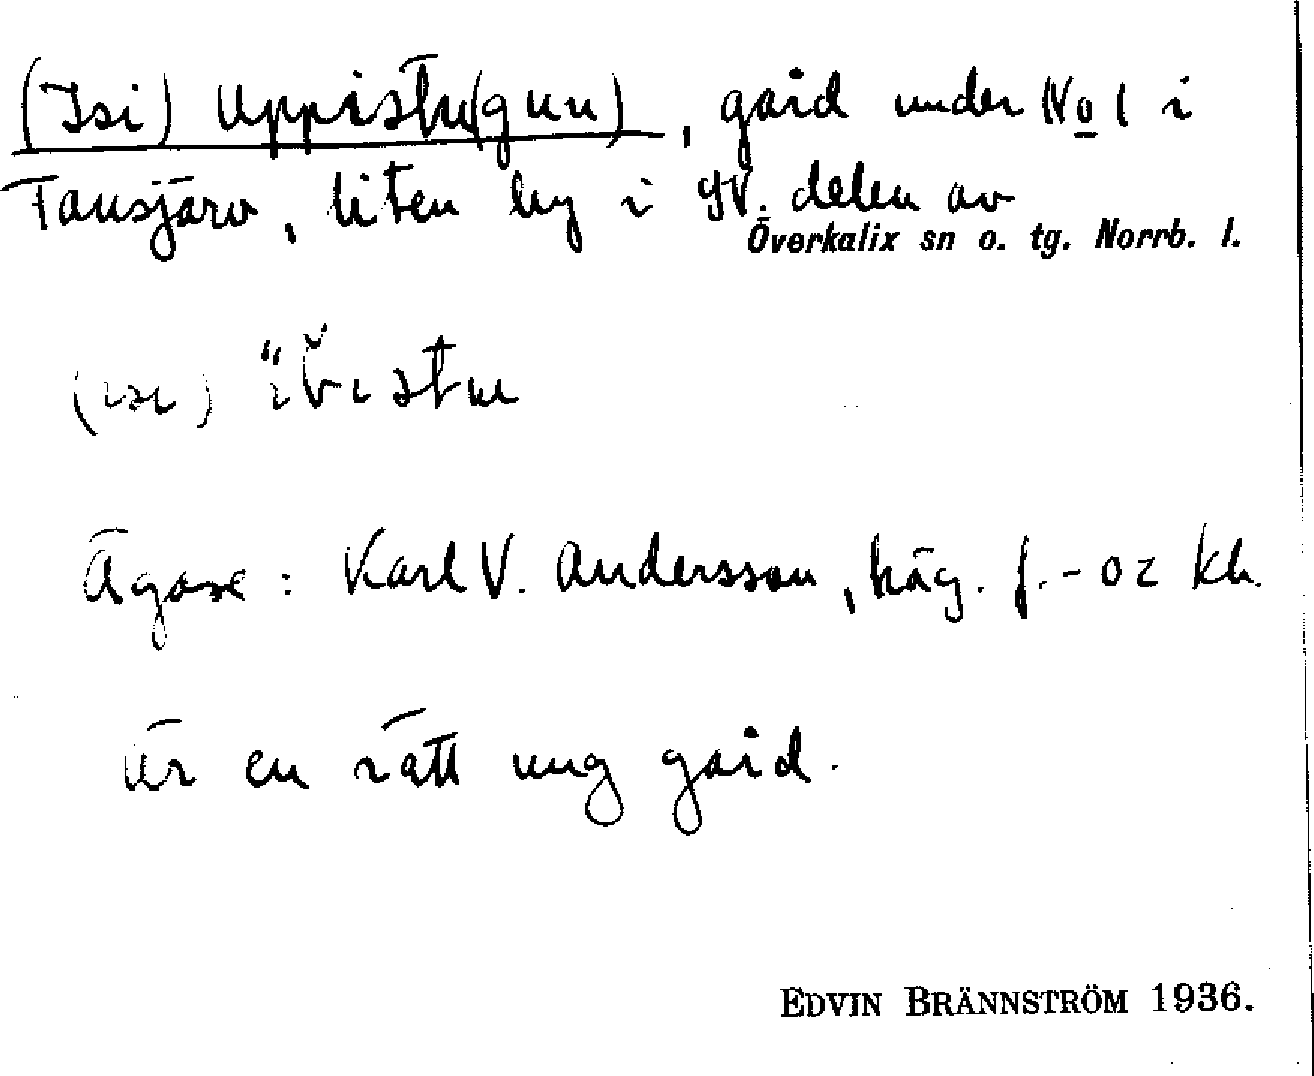 (Isi) Uppistu(gun), gård under No 1 i
Tansjärv, liten by i SV. delen av
Överkalix sn o. tg. Norrb. l.
(isi)
Ägare: Karl V. Andersson, häg. f. -02 Kh.
Är en rätt ung gård.
EDVIN BRÄNNSTRÖM 1936.